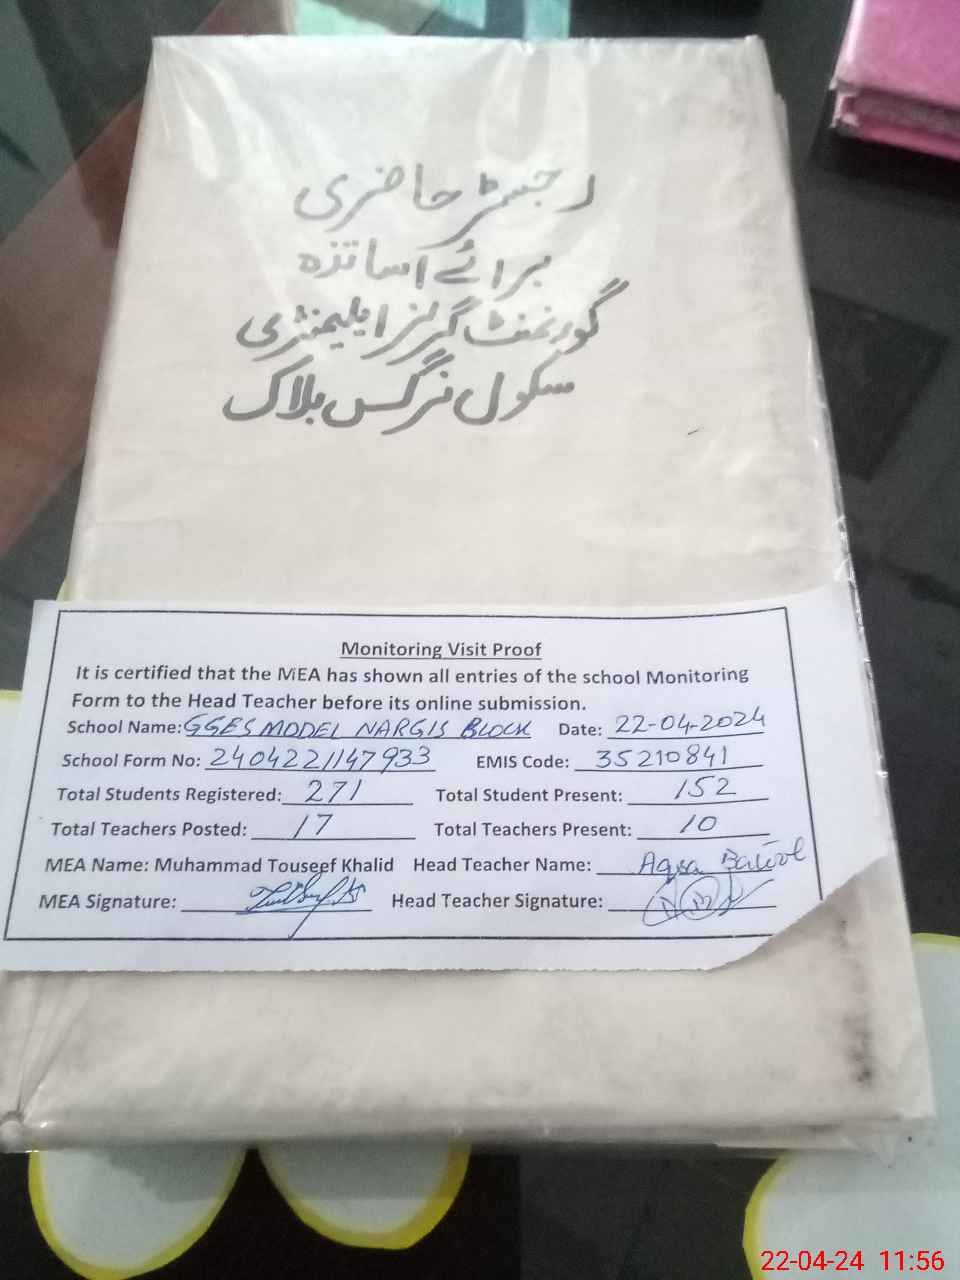 رجسٹر حاضری
برائے اساتذہ
گورنمنٹ گرلز ایلیمنٹری
سکول نرگس بلاک
Monitoring Visit Proof
It is certified that the MEA has shown all entries of the school Monitoring
Form to the Head Teacher before its online submission.
School Name: GGES MODEL NARGIS BLOCK Date: 22-04-2024
School Form No: 2404221147933 EMIS Code: 35210841
Total Students Registered: 271 Total Student Present: 152
Total Teachers Posted: 17 Total Teachers Present: 10
MEA Name: Muhammad Touseef Khalid Head Teacher Name: Aqsa Batool
MEA Signature: Head Teacher Signature:
22-04-24 11:56